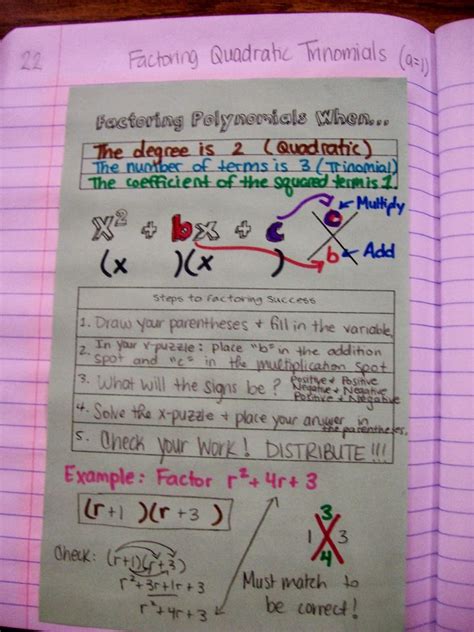 22
Factoring Quadratic Trinomials (a=1)
Factoring Polynomials When...
The degree is 2 (Quadratic)
The number of terms is 3 (Trinomial)
The coefficient of the squared term is 1.
x² + bx + c
c ← Multiply
b ← Add
(x )(x )
Steps to Factoring Success
1. Draw your parentheses + fill in the variable.
2. In your x-puzzle: place "b" in the addition
spot and "c" in the multiplication spot
3. What will the signs be? Positive + Positive
Negative + Negative
Positive + Negative
4. Solve the x-puzzle + place your answer in
the parentheses.
5. Check your Work! DISTRIBUTE!!!
Example: Factor r² + 4r + 3
(r+1)(r+3)
3
1 3
4
Check: (r+1)(r+3)
r²+3r+1r+3
r²+4r+3
Must match to
be correct!